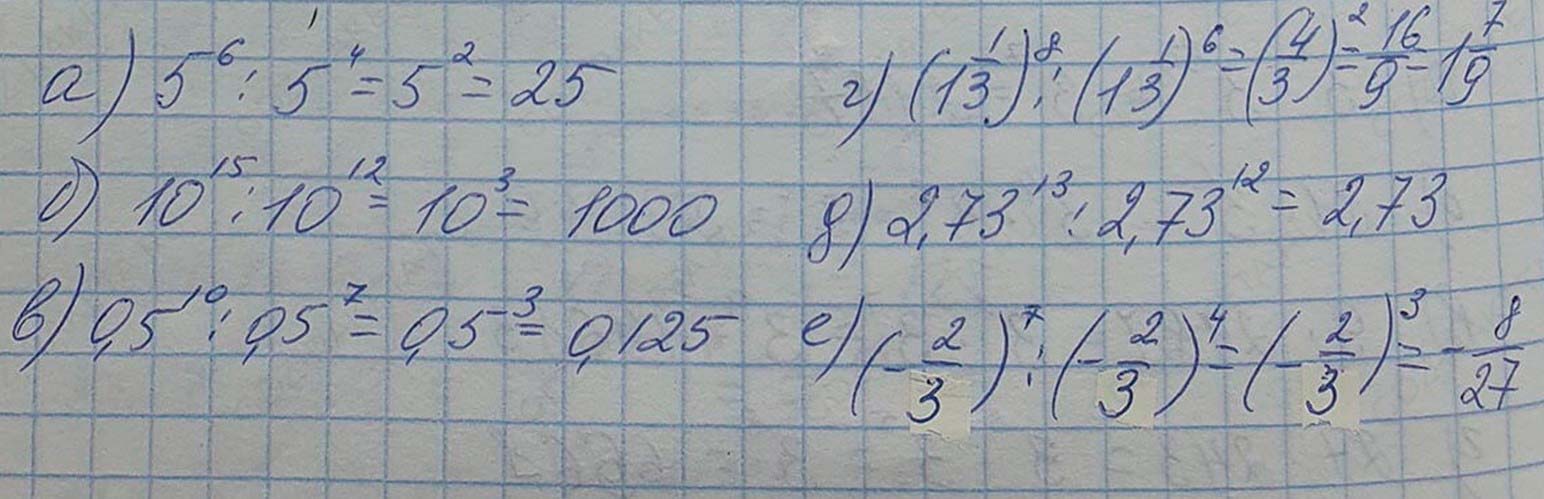 а) 5⁶ : 5⁴ = 5² = 25
б) 10¹⁵ : 10¹² = 10³ = 1000
в) 0,5¹⁰ : 0,5⁷ = 0,5³ = 0,125
г) (1 1/3)⁸ : (1 1/3)⁶ = (4/3)² = 16/9 = 1 7/9
д) 2,73¹³ : 2,73¹² = 2,73
е) (-2/3)⁷ : (-2/3)⁴ = (-2/3)³ = -8/27